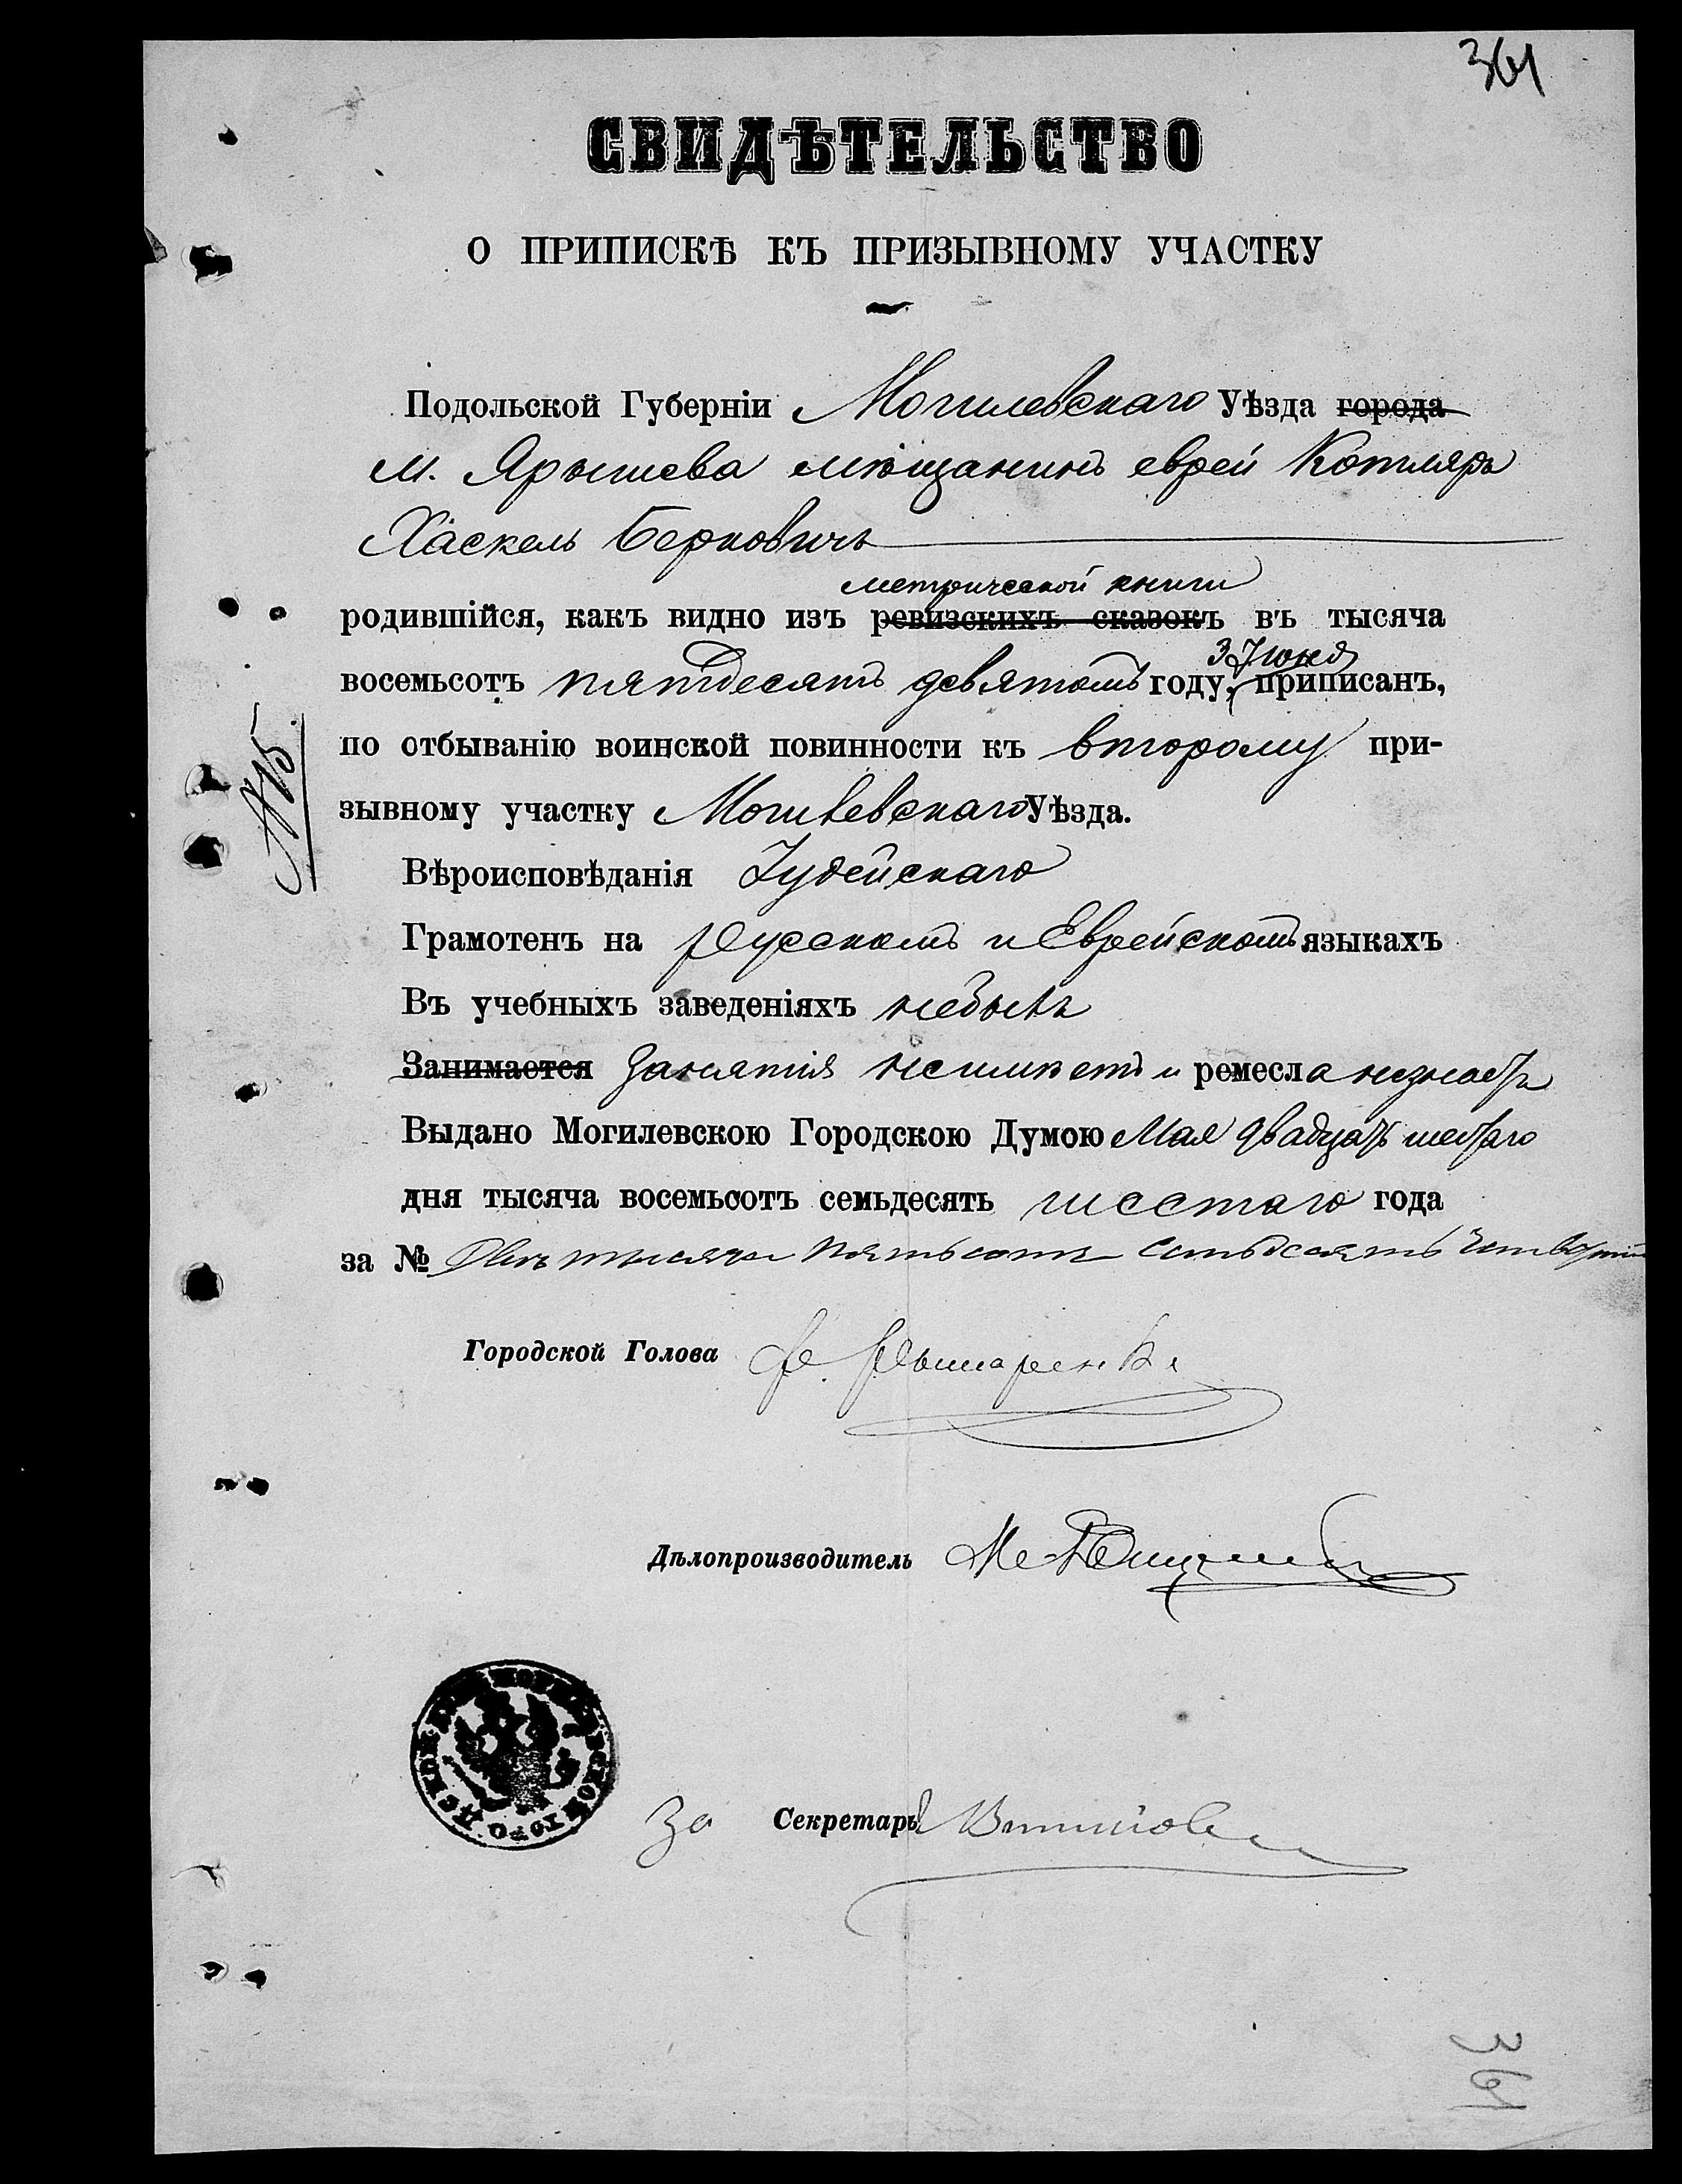 361
СВИДѢТЕЛЬСТВО
О ПРИПИСКѢ КЪ ПРИЗЫВНОМУ УЧАСТКУ
Подольской Губерніи Могилевскаго Уѣзда города
м. Ярышева мѣщанинъ еврей Котляръ
Хаскель Берковичъ
метрической книги
родившійся, какъ видно изъ ревизскихъ сказокъ въ тысяча
3 Іюня
восемьсотъ пятдесятъ девятомъ году, приписанъ,
по отбыванію воинской повинности къ второму при-
зывному участку Могилевскаго Уѣзда.
Вѣроисповѣданія Іудейскаго
Грамотенъ на Русскомъ и Еврейскомъ языкахъ
Въ учебныхъ заведеніяхъ небылъ
Занимается Занятія неимѣетъ и ремесла незнаетъ
Выдано Могилевскою Городскою Думою Мая двадцать шестаго
дня тысяча восемьсотъ семьдесять шестаго года
за № Двѣ тысячи пятьсотъ семьдесять четвертый
Городской Голова
Дѣлопроизводитель
За Секретаря
361